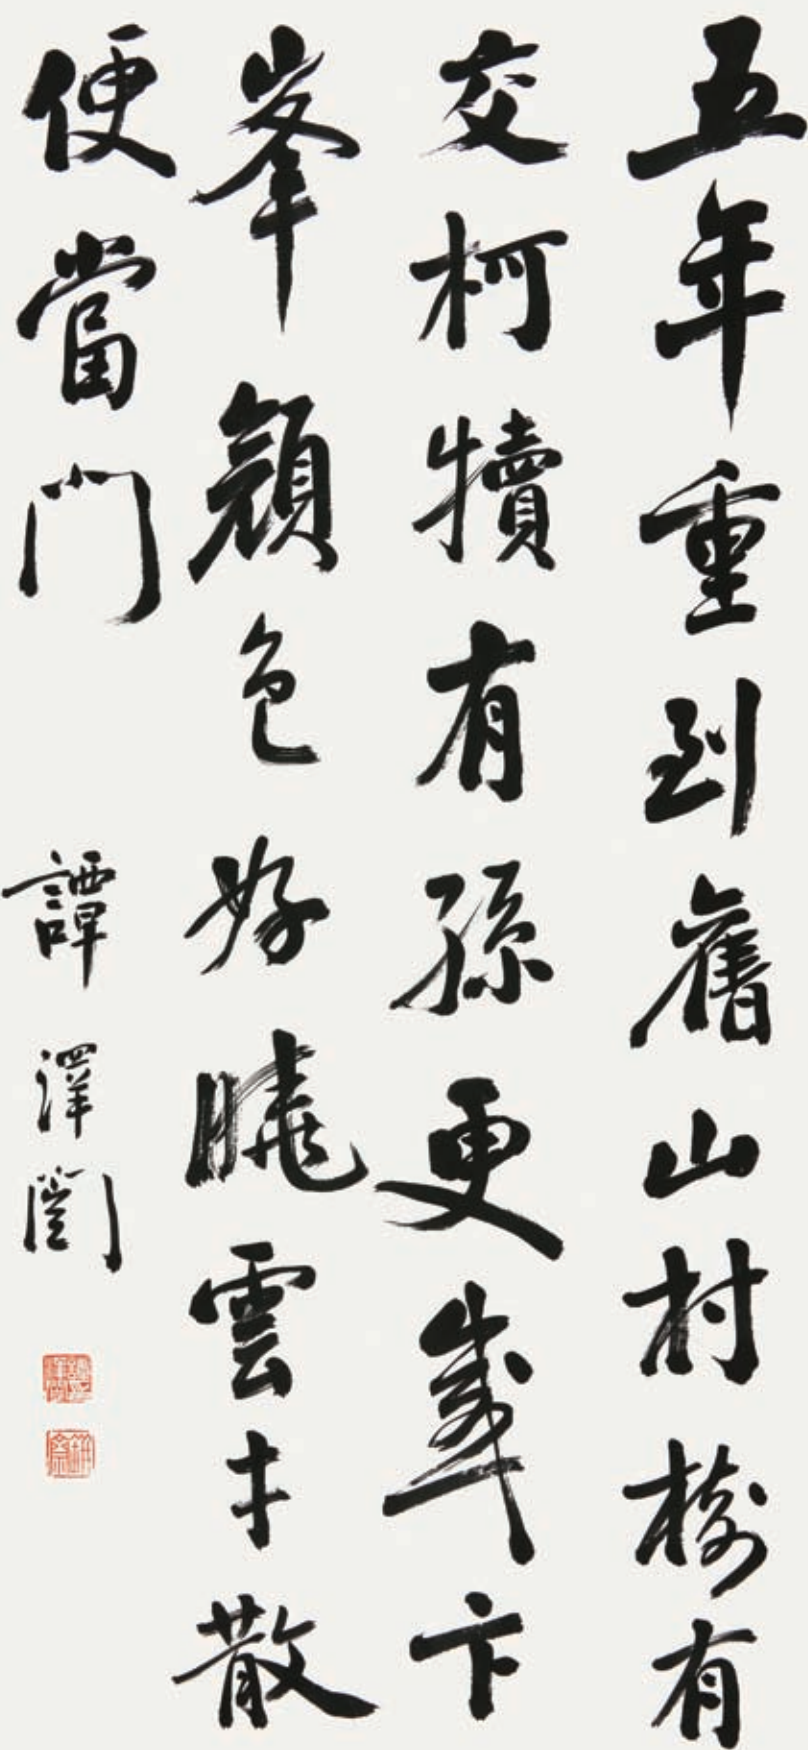 五年重到舊山村樹有
交柯犢有孫更卞
峯顏色好曉雲才散
便當門
譚澤闓